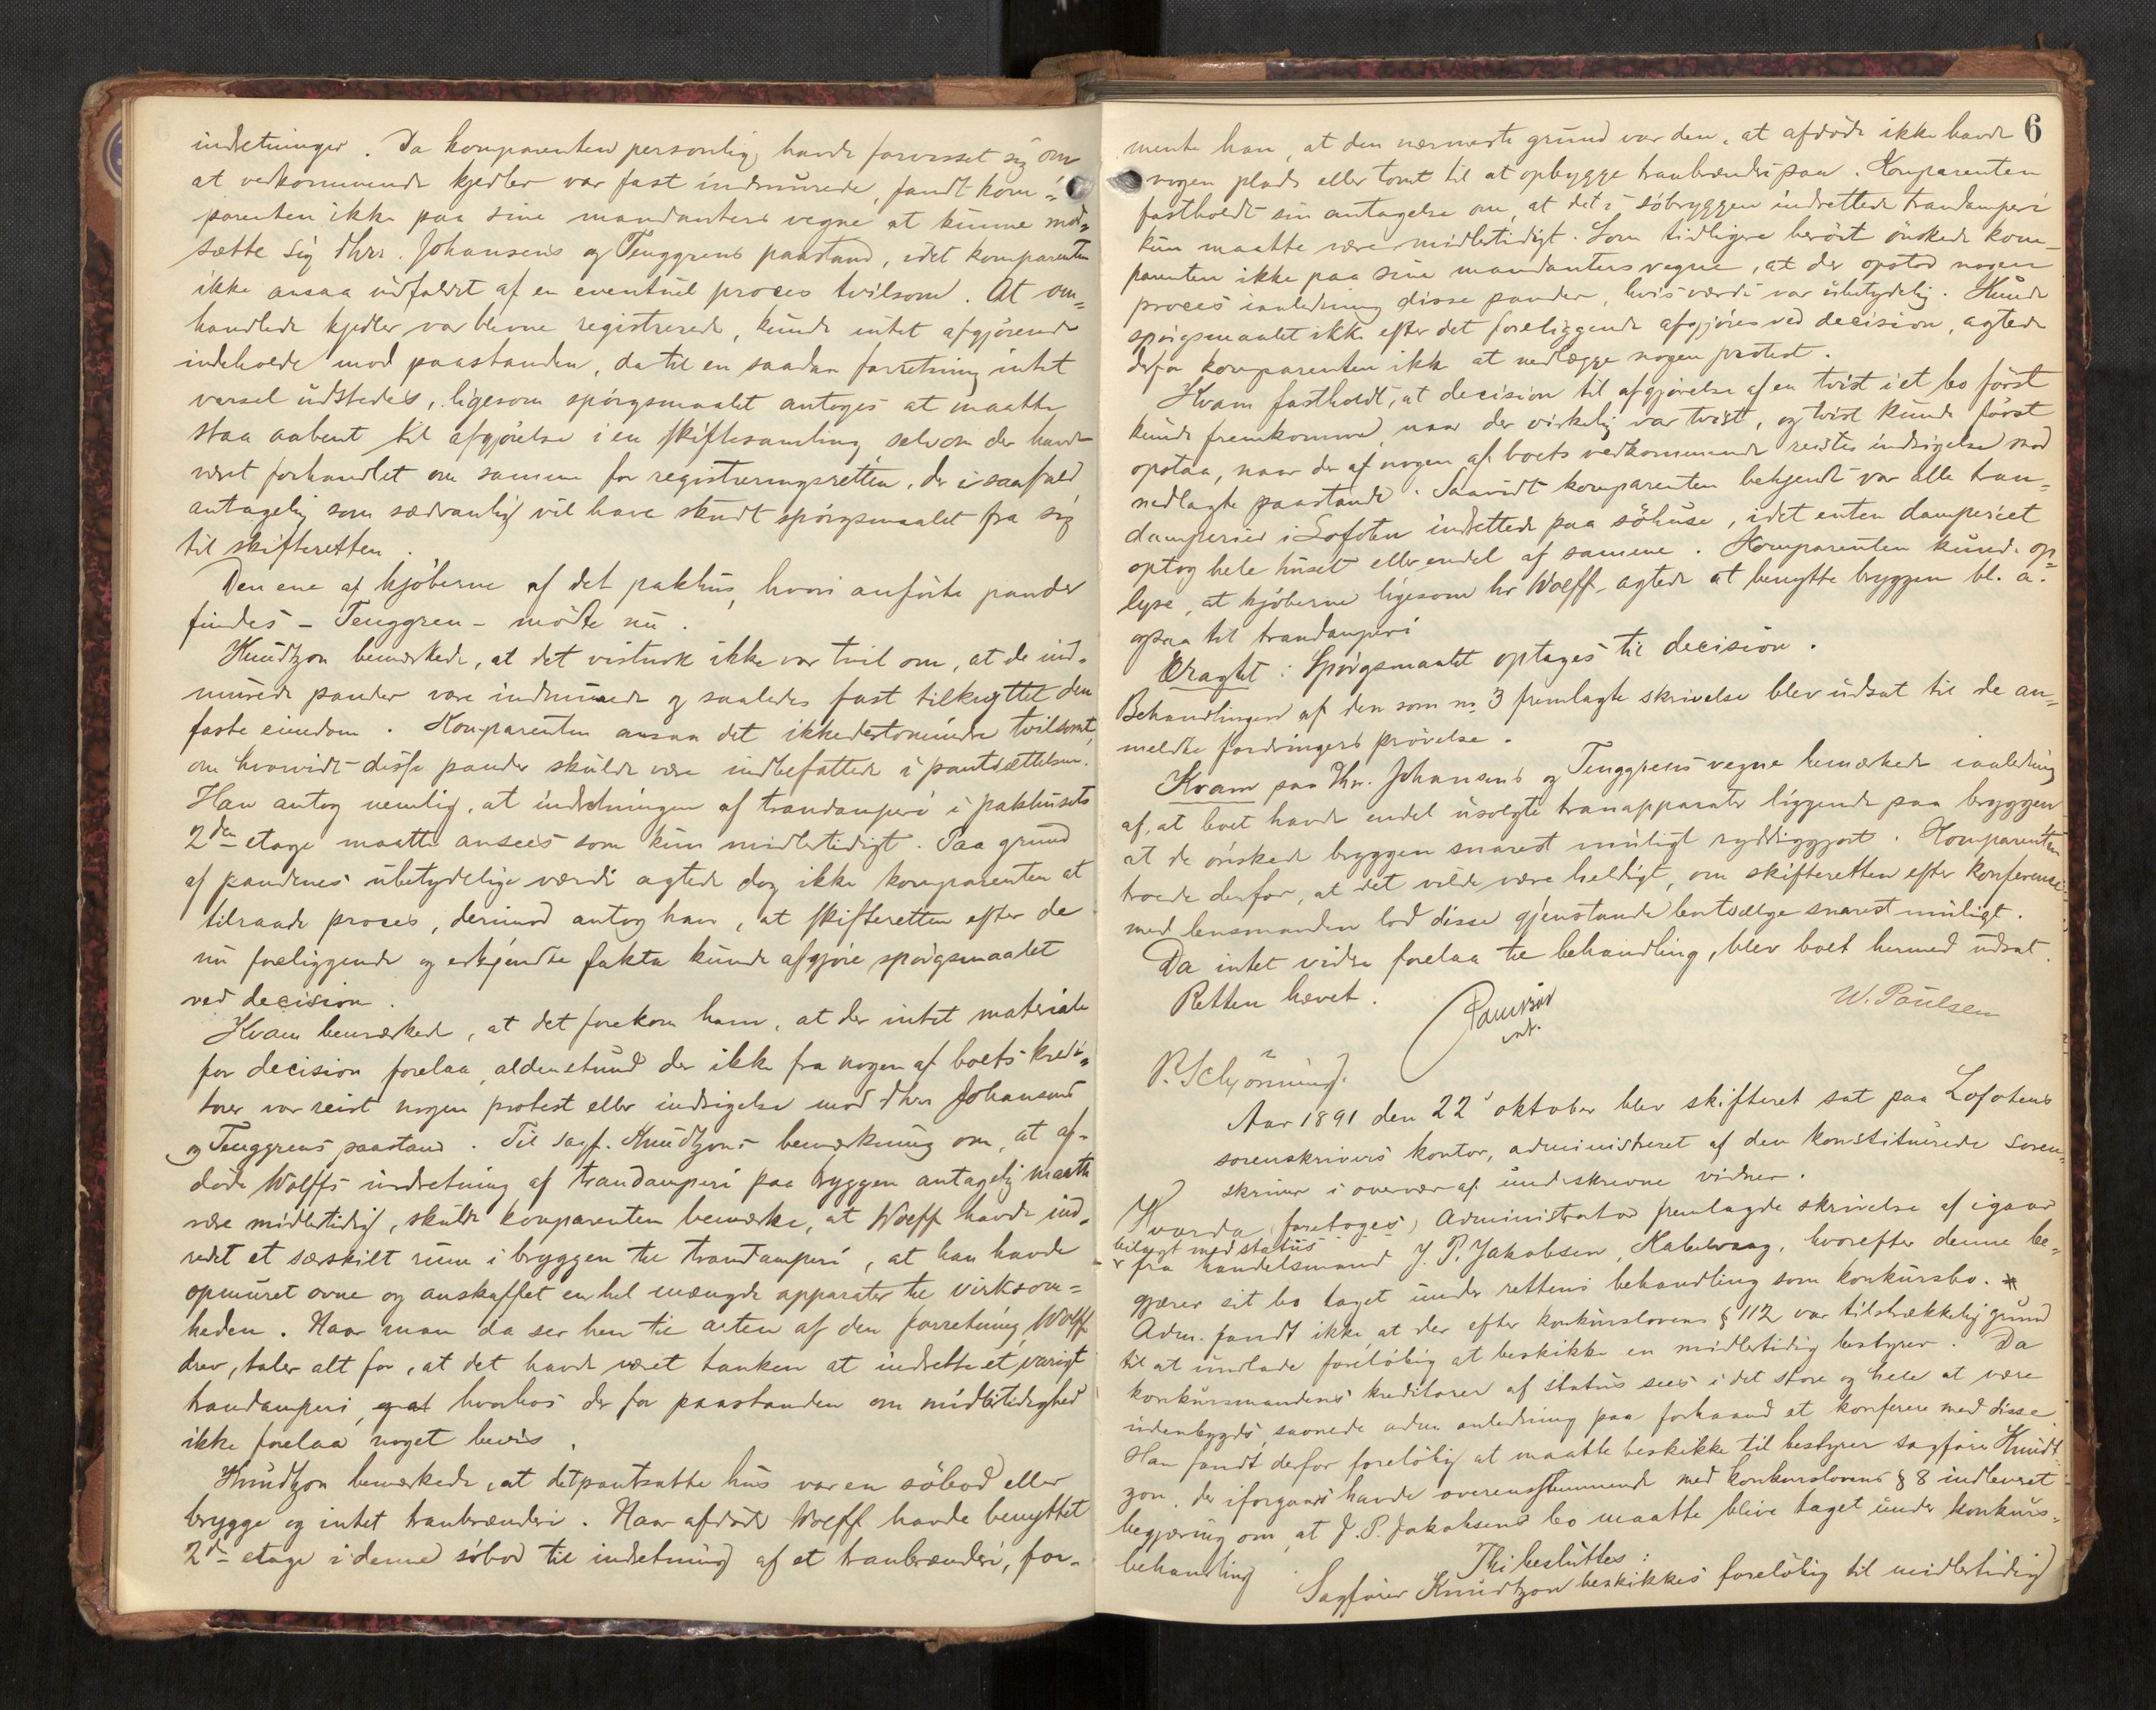 indretninger. Da komparenten personlig havde forvisset sig om
at vedkommende kjedler var fast indmurede, fandt kom-
parenten ikke paa sine mandanters vegne at kunne mod-
sætte sig dhrr. Johansens og Tenggrens paastand, idet komparenten
ikke ansaa udfaldet af en eventuel proces tvilsom. At om-
handlede kjedler var blevne registrerede, kunde intet afgjørende
indeholde mod paastanden, da til en saadan forretning intet
varsel udstedes, ligesom spørgsmaalet antoges at maatte
staa aabent til afgjørelse i en skiftesamling, selv om der havde
været forhandlet om samme for registreringsretten, der i saafald
antagelig som sædvanlig vil have skudt spørgsmaalet fra sig
til skifteretten.
Den ene af kjøberne af det pakhus, hvori anførte pander
findes - Tenggren - mødte nu.
Knudtzon bemærkede, at det vistnok ikke var tvil om, at de ind-
murede pander vare indmurede og saaledes fast tilknyttet den
faste eiendom. Komparenten ansaa det ikkedestomindre tvilsomt,
om hvorvidt disse pander skulde være indbefattede i pantsættelsen.
Han antog nemlig, at indretningen af trandamperi i pakhusets
2den etage maatte ansees som kun midlertidigt. Paa grund
af pandernes ubetydelige værdi agtede dog ikke komparenten at
tilraade proces, derimod antog han, at skifteretten efter de
nu foreliggende og erkjendte fakta kunde afgjøre spørgsmaalet
ved decision.
Kvam bemærkede, at det forekom ham, at der intet materiale
for decision forelaa, aldenstund der ikke fra nogen af boets kredi-
torer var reist nogen protest eller indsigelse mod dhrr Johansens
og Tenggrens paastand. Til sagf. Knudtzons bemærkning om, at af-
døde Wolffs indretning af trandamperi paa bryggen antagelig maatte
være midlertidig, skulde komparenten bemærke, at Wolff havde ind-
redet et særskilt rum i bryggen til trandamperi, at han havde
opmuret ovne og anskaffet en hel mængde apparater til virksom-
heden. Naar man da ser hen til arten af den forretning, Wolff
drev, taler alt for, at det havde været tanken at indrette et varigt
trandamperi, og at hvorhos der for paastanden om midlertidighed
ikke forelaa noget bevis.
Knudtzon bemærkede, at det pantsatte hus var en søbod eller
brygge og intet tranbrænderi. Naar afdøde Wolff havde benyttet
2den etage i denne søbod til indretning af et tranbrænderi, for-
6
mente han, at den nærmeste grund var den, at afdøde ikke havde
nogen plads eller tomt til at opbygge tranbrænderi paa. Komparenten
fastholdt sin antagelse om, at det i søbryggen indrettede trandamperi
kun maatte være midlertidigt. Som tidligere berørt ønskede kom-
parenten ikke paa sine mandanters vegne, at der opstod nogen
proces i anledning disse pander, hvis værdi var ubetydelig. Kunde
spørgsmaalet ikke efter det foreliggende afgjøres ved decision, agtede
derfor komparenten ikke at nedlægge nogen protest.
Kvam fastholdt, at decision til afgjørelse af en tvist i et bo først
kunde fremkomme, naar der virkelig var tvist, og tvist kunde først
opstaa, naar der af nogen af boets vedkommende reistes indsigelse mod
nedlagte paastande. Saavidt komparenten bekjendt var alle tran-
damperier i Lofoten indrettede paa søhuse, idet enten damperiet
optog hele huset eller endel af samme. Komparenten kunde op-
lyse, at kjøberne ligesom hr Wolff agtede at benytte bryggen bl. a.
ogsaa til trandamperi
Eragtet: Spørgsmaalet optages til decision.
Behandlingen af den som no 3 fremlagte skrivelse blev udsat til de an-
meldte fordringers prøvelse.
Kvam paa dhrr. Johansens og Tenggrens vegne bemærkede i anledning
af, at boet havde endel usolgte tranapparater liggende paa bryggen
at de ønskede bryggen snarest muligt ryddiggjort. Komparenten
troede derfor, at det vilde være heldigt, om skifteretten efter konference
med lensmanden lod disse gjenstande bortsælge snarest muligt.
Da intet videre forelaa til behandling, blev boet hermed udsat.
Retten hævet.
W. Paulsen
P. Schjønning.
Aar 1891 den 22' oktober blev skifteret sat paa Lofotens
sorenskriveris kontor, administreret af den konstituerede soren-
skriver i overvær af underskrevne vidner.
Hvorda foretoges, Administrator fremlagde skrivelse af igaar
bilagt med status
fra handelsmand J. P. Jakobsen, Kabelvaag, hvorefter denne be-
gjærer sit bo taget under rettens behandling som konkursbo.
Adm. fandt ikke, at der efter konkurslovens § 112 var tilstrækkelig grund
til at undlade foreløbig at beskikke en midlertidig bestyrer. Da
konkursmandens kreditorer af status sees i det store og hele at være
udenbygds, savnede adm. anledning paa forhaand at konferere med disse.
Han fandt derfor foreløbig at maatte beskikke til bestyrer sagfører Knudt-
zon, der iforgaars havde overensstemmende med konkurslovens § 8 indleveret
begjæring om, at J. P. Jakobsens bo maatte blive taget under konkurs-
behandling
Thi besluttes:
Sagfører Knudtzon beskikkes foreløbig til midlertidig